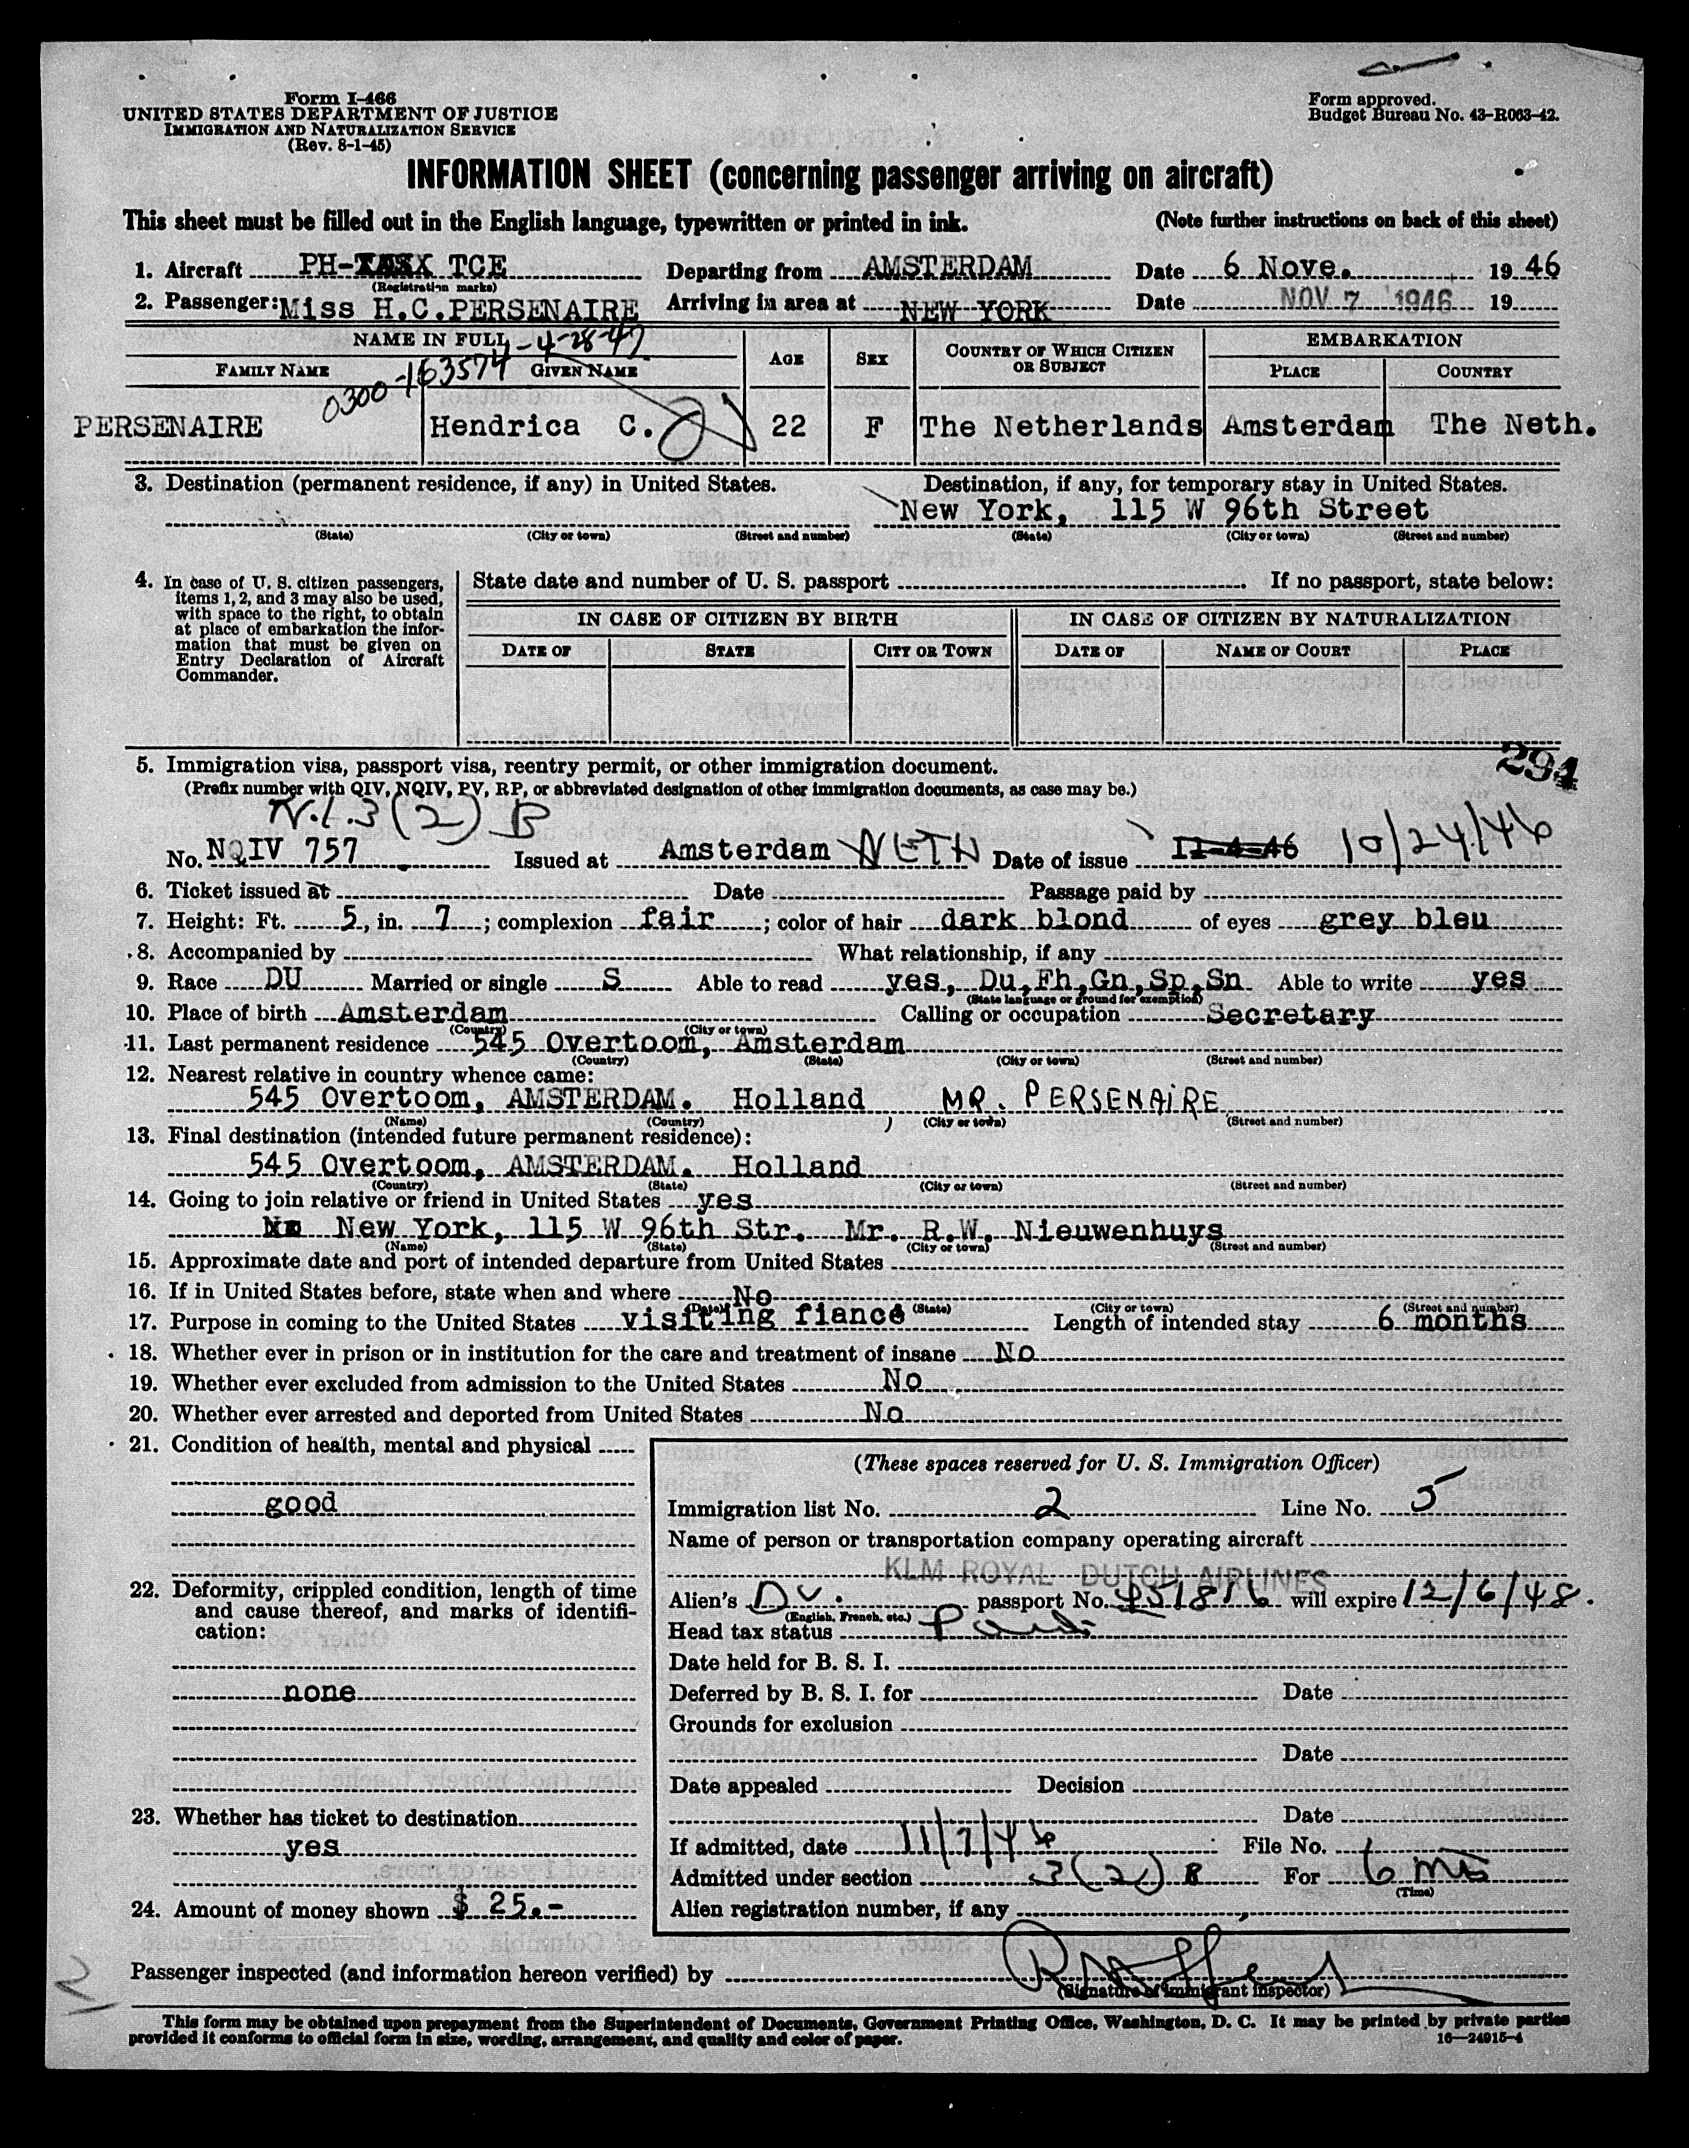 Form I-466
UNITED STATES DEPARTMENT OF JUSTICE
IMMIGRATION AND NATURALIZATION SERVICE
(Rev. 8-1-45)
Form approved.
Budget Bureau No. 43-R063-42.
INFORMATION SHEET (concerning passenger arriving on aircraft)
This sheet must be filled out in the English language, typewritten or printed in ink. (Note further instructions on back of this sheet)
1. Aircraft PH- TCE Departing from AMSTERDAM Date 6 Nove. 1946
(Registration marks)
2. Passenger: Miss H.C.PERSENAIRE Arriving in area at NEW YORK Date NOV 7 1946 19
NAME IN FULL -4-28-47 AGE SEX COUNTRY OF WHICH CITIZEN OR SUBJECT EMBARKATION
FAMILY NAME 0300-163574 GIVEN NAME PLACE COUNTRY
PERSENAIRE Hendrica C. 22 F The Netherlands Amsterdam The Neth.
3. Destination (permanent residence, if any) in United States. Destination, if any, for temporary stay in United States.
New York, 115 W 96th Street
(State) (City or town) (Street and number) (State) (City or town) (Street and number)
4. In case of U. S. citizen passengers, items 1, 2, and 3 may also be used, with space to the right, to obtain at place of embarkation the information that must be given on Entry Declaration of Aircraft Commander.
State date and number of U. S. passport . If no passport, state below:
IN CASE OF CITIZEN BY BIRTH IN CASE OF CITIZEN BY NATURALIZATION
DATE OF STATE CITY OR TOWN DATE OF NAME OF COURT PLACE
294
5. Immigration visa, passport visa, reentry permit, or other immigration document.
(Prefix number with QIV, NQIV, PV, RP, or abbreviated designation of other immigration documents, as case may be.)
3(2) B
No. NQIV 757 Issued at Amsterdam NETH Date of issue 11-4-46 10/24/46
6. Ticket issued at Date Passage paid by
7. Height: Ft. 5, in. 7; complexion fair; color of hair dark blond of eyes grey bleu
8. Accompanied by What relationship, if any
9. Race DU Married or single S Able to read yes, Du,Fh,Gn,Sp,Sn Able to write yes
(State language or ground for exemption)
10. Place of birth Amsterdam Calling or occupation Secretary
(Country) (City or town)
11. Last permanent residence 545 Overtoom, Amsterdam
(Country) (State) (City or town) (Street and number)
12. Nearest relative in country whence came:
545 Overtoom, AMSTERDAM. Holland MR. PERSENAIRE
(Name) (Country) (City or town) (Street and number)
13. Final destination (intended future permanent residence):
545 Overtoom, AMSTERDAM. Holland
(Country) (State) (City or town) (Street and number)
14. Going to join relative or friend in United States yes
New York, 115 W 96th Str. Mr. R.W. Nieuwenhuys
(Name) (State) (City or town) (Street and number)
15. Approximate date and port of intended departure from United States
16. If in United States before, state when and where No
(Date) (State) (City or town) (Street and number)
17. Purpose in coming to the United States visiting fiancé Length of intended stay 6 months
18. Whether ever in prison or in institution for the care and treatment of insane No
19. Whether ever excluded from admission to the United States No
20. Whether ever arrested and deported from United States No
21. Condition of health, mental and physical
good
22. Deformity, crippled condition, length of time
and cause thereof, and marks of identifi-
cation:
none
23. Whether has ticket to destination
yes
24. Amount of money shown $ 25.-
(These spaces reserved for U. S. Immigration Officer)
Immigration list No. 2 Line No. 5
Name of person or transportation company operating aircraft
KLM ROYAL DUTCH AIRLINES
Alien's Du. passport No. 951816 will expire 12/6/48.
(English, French, etc.)
Head tax status Paid
Date held for B. S. I.
Deferred by B. S. I. for Date
Grounds for exclusion
Date
Date appealed Decision
Date
If admitted, date 11/7/46 File No.
Admitted under section 3(2) B For 6 mos
(Time)
Alien registration number, if any
Passenger inspected (and information hereon verified) by
(Signature of immigrant inspector)
This form may be obtained upon prepayment from the Superintendent of Documents, Government Printing Office, Washington, D. C. It may be printed by private parties
provided it conforms to official form in size, wording, arrangement, and quality and color of paper. 16—24915-4